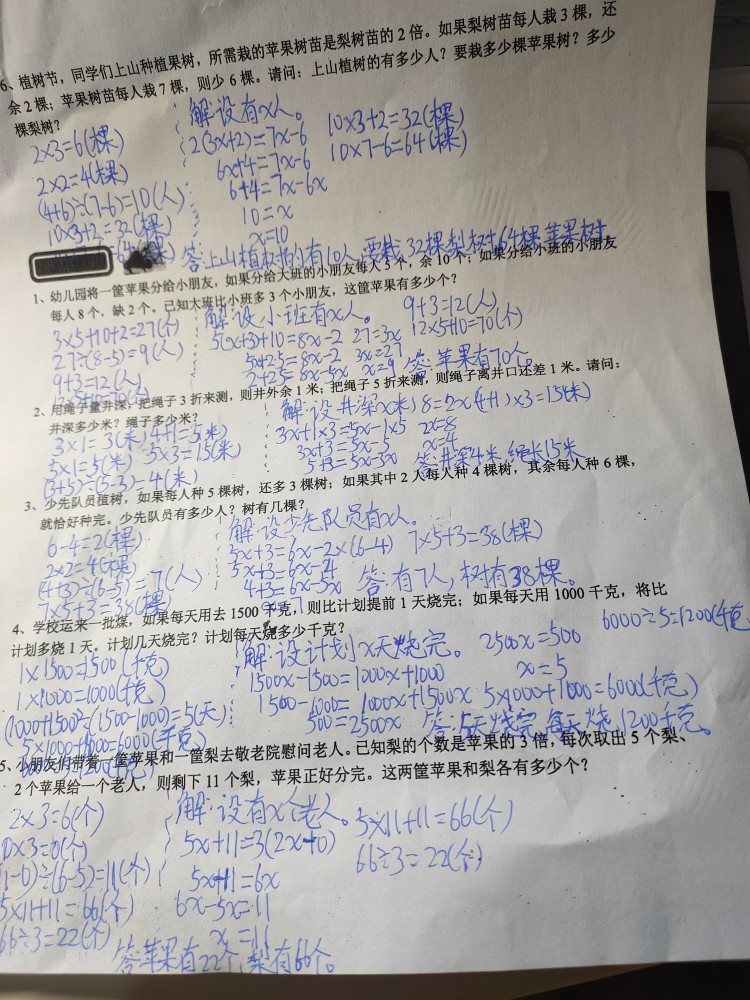 6、植树节，同学们上山种植果树，所需栽的苹果树苗是梨树苗的2倍。如果梨树苗每人栽3棵，还
余2棵；苹果树苗每人栽7棵，则少6棵。请问：上山植树的有多少人？要栽多少棵苹果树？多少
棵梨树？
2×3=6(棵)
2×2=4(棵)
(4+6)÷(7-6)=10(人)
10×3+2=32(棵)
解:设有x人。
2(3x+2)=7x-6
6x+4=7x-6
6+4=7x-6x
10=x
x=10
10×3+2=32(棵)
10×7-6=64(棵)
答:上山植树的有10人,要栽32棵梨树,64棵苹果树。
1、幼儿园将一筐苹果分给小朋友，如果分给大班的小朋友每人5个，余10个；如果分给小班的小朋友
每人8个，缺2个。已知大班比小班多3个小朋友，这筐苹果有多少个？
3×5+10+2=27(个)
27÷(8-5)=9(人)
9+3=12(人)
12×5+10=70(个)
解:设小班有x人。
5(x+3)+10=8x-2
5x+25=8x-2
2+25=8x-5x
27=3x
3x=27
x=9
9+3=12(人)
12×5+10=70(个)
答:苹果有70个。
2、用绳子量井深，把绳子3折来测，则井外余1米；把绳子5折来测，则绳子离井口还差1米。请问：
井深多少米？绳子多少米？
3×1=3(米) 4+1=5(米)
5×1=5(米) 5×3=15(米)
(3+5)÷(5-3)=4(米)
解:设井深x米
3x+1×3=5x-1×5
3x+3=5x-5
5+3=5x-3x
8=2x
2x=8
x=4
(4+1)×3=15(米)
答:井深4米,绳长15米
3、少先队员植树，如果每人种5棵树，还多3棵树；如果其中2人每人种4棵树，其余每人种6棵，
就恰好种完。少先队员有多少人？树有几棵？
6-4=2(棵)
2×2=4(棵)
(4+3)÷(6-5)=7(人)
7×5+3=38(棵)
解:设少先队员有x人。
5x+3=6x-2×(6-4)
5x+3=6x-4
4+3=6x-5x
7×5+3=38(棵)
答:有7人,树有38棵。
4、学校运来一批煤，如果每天用去1500千克，则比计划提前1天烧完；如果每天用1000千克，将比
计划多烧1天。计划几天烧完？计划每天烧多少千克？
1×1500=1500(千克)
1×1000=1000(千克)
(1000+1500)÷(1500-1000)=5(天)
5×1000+1000=6000(千克)
解:设计划x天烧完。
1500x-1500=1000x+1000
1500-1000=1000x+1500x
500=2500x
2500x=500
x=5
5×1000+1000=6000(千克)
6000÷5=1200(千克)
答:5天烧完,每天烧1200千克。
5、小朋友们带着一筐苹果和一筐梨去敬老院慰问老人。已知梨的个数是苹果的3倍，每次取出5个梨、
2个苹果给一个老人，则剩下11个梨，苹果正好分完。这两筐苹果和梨各有多少个？
2×3=6(个)
0×3=0(个)
(11-0)÷(6-5)=11(个)
5×11+11=66(个)
66÷3=22(个)
解:设有x个老人。
5x+11=3(2x+0)
5x+11=6x
6x-5x=11
x=11
5×11+11=66(个)
66÷3=22(个)
答:苹果有22个,梨有66个。